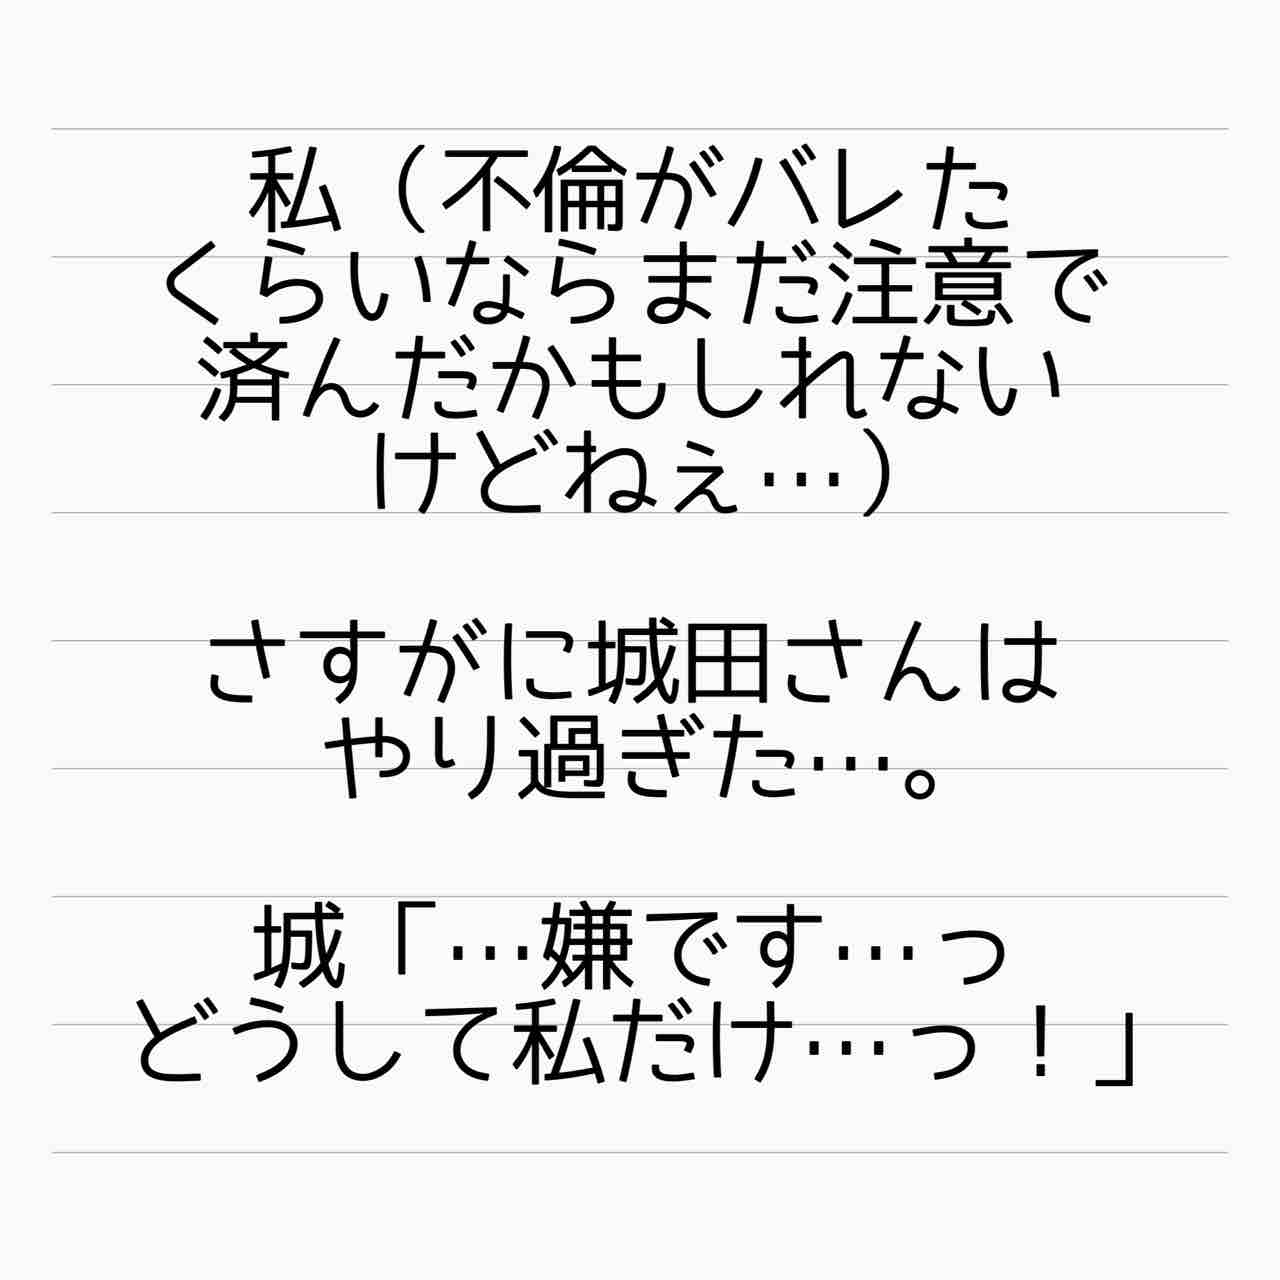 私（不倫がバレた
くらいならまだ注意で
済んだかもしれない
けどねぇ…）
さすがに城田さんは
やり過ぎた…。
城「…嫌です…っ
どうして私だけ…っ！」